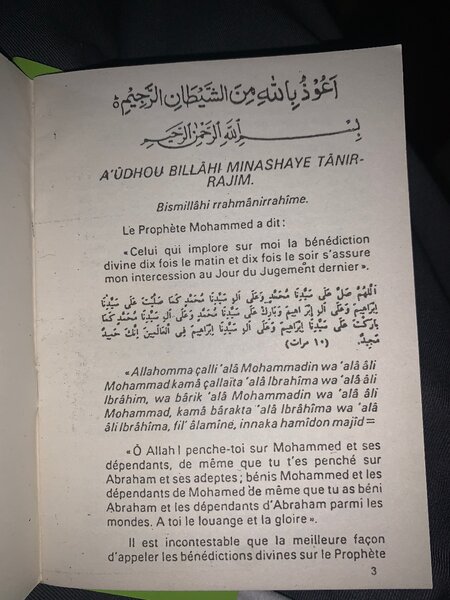 اَعُوْذُ بِاللّٰهِ مِنَ الشَّيْطَانِ الرَّجِيْمِ ۃ
بِسْمِ اللّٰهِ الرَّحْمٰنِ الرَّحِيْمِ
A'ÛDHOU BILLÂHI MINASHAYE TÂNIR-
RAJIM.
Bismillâhi rrahmânirrahîme.
Le Prophète Mohammed a dit :
«Celui qui implore sur moi la bénédiction
divine dix fois le matin et dix fois le soir s'assure
mon intercession au Jour du Jugement dernier».
اَللّٰهُمَّ صَلِّ عَلَى سَيِّدِنَا مُحَمَّدٍ وَعَلَى آلِ سَيِّدِنَا مُحَمَّدٍ كَمَا صَلَّيْتَ عَلَى سَيِّدِنَا
اِبْرَاهِيمَ وَعَلَى آلِ اِبْرَاهِيمَ وَبَارِكْ عَلَى سَيِّدِنَا مُحَمَّدٍ وَعَلَى آلِ سَيِّدِنَا مُحَمَّدٍ كَمَا
بَارَكْتَ عَلَى سَيِّدِنَا اِبْرَاهِيمَ وَعَلَى آلِ سَيِّدِنَا اِبْرَاهِيمَ فِى الْعَالَمِينَ اِنَّكَ حَمِيدٌ
مَجِيدٌ. (١٠ مرات)
«Allahomma çalli 'alâ Mohammadin wa 'alâ âli
Mohammad kamâ çallaïta 'alâ Ibrahîma wa 'alâ âli
Ibrâhim, wa bârik 'alâ Mohammadin wa 'alâ âli
Mohammad, kamâ bârakta 'alâ Ibrâhîma wa 'alâ
âli Ibrâhîma, fil' âlamîne, innaka hamîdon majîd=
«Ô Allah ! penche-toi sur Mohammed et ses
dépendants, de même que tu t'es penché sur
Abraham et ses adeptes ; bénis Mohammed et les
dépendants de Mohamed de même que tu as béni
Abraham et les dépendants d'Abraham parmi les
mondes. A toi le louange et la gloire».
Il est incontestable que la meilleure façon
d'appeler les bénédictions divines sur le Prophète
3